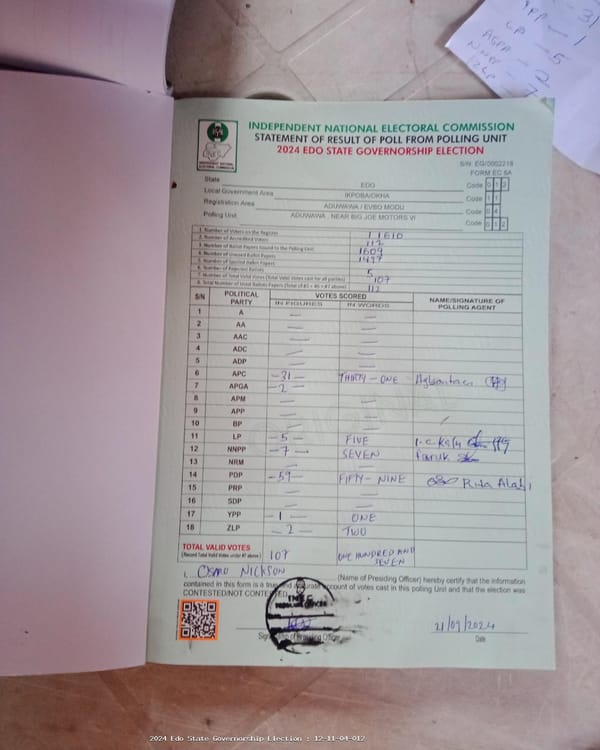 YPP — 1
LP — 5
AGPA — 2
NNPP —
ZLP —
INDEPENDENT NATIONAL ELECTORAL COMMISSION
STATEMENT OF RESULT OF POLL FROM POLLING UNIT
2024 EDO STATE GOVERNORSHIP ELECTION
S/N: EG/0002218
FORM EC 8A
State EDO Code 0 1 2
Local Government Area IKPOBA/OKHA Code 1 1
Registration Area ADUWAWA / EVBO MODU Code 0 4
Polling Unit ADUWAWA , NEAR BIG JOE MOTORS VI Code 0 1 2
1. Number of Voters on the Register 1610
2. Number of Accredited Voters 112
3. Number of Ballot Papers Issued to the Polling Unit 1609
4. Number of Unused Ballot Papers 1497
5. Number of Spoiled Ballot Papers
6. Number of Rejected Ballots 5
7. Number of Total Valid Votes (Total Valid Votes cast for all parties) 107
8. Total Number of Used Ballots Papers (Total of #5 + #6 + #7 above) 112
S/N POLITICAL PARTY VOTES SCORED NAME/SIGNATURE OF POLLING AGENT
IN FIGURES IN WORDS
1 A — —
2 AA — —
3 AAC — —
4 ADC — —
5 ADP — —
6 APC -31- THIRTY-ONE
7 APGA -2-
8 APM — —
9 APP — —
10 BP — —
11 LP -5- FIVE
12 NNPP -7- SEVEN Faruk
13 NRM — —
14 PDP -59- FIFTY-NINE Rita Alabi
15 PRP — —
16 SDP — —
17 YPP -1- ONE
18 ZLP -2- TWO
TOTAL VALID VOTES 107 ONE HUNDRED AND SEVEN
(Record Total Valid Votes under #7 above)
I, OSARO NICKSON (Name of Presiding Officer) hereby certify that the information
contained in this form is a true and accurate account of votes cast in this polling Unit and that the election was
CONTESTED/NOT CONTESTED
INEC
PRESIDING OFFICER
Signature of Presiding Officer
21/09/2024
Date
2024 Edo State Governorship Election : 12-11-04-012